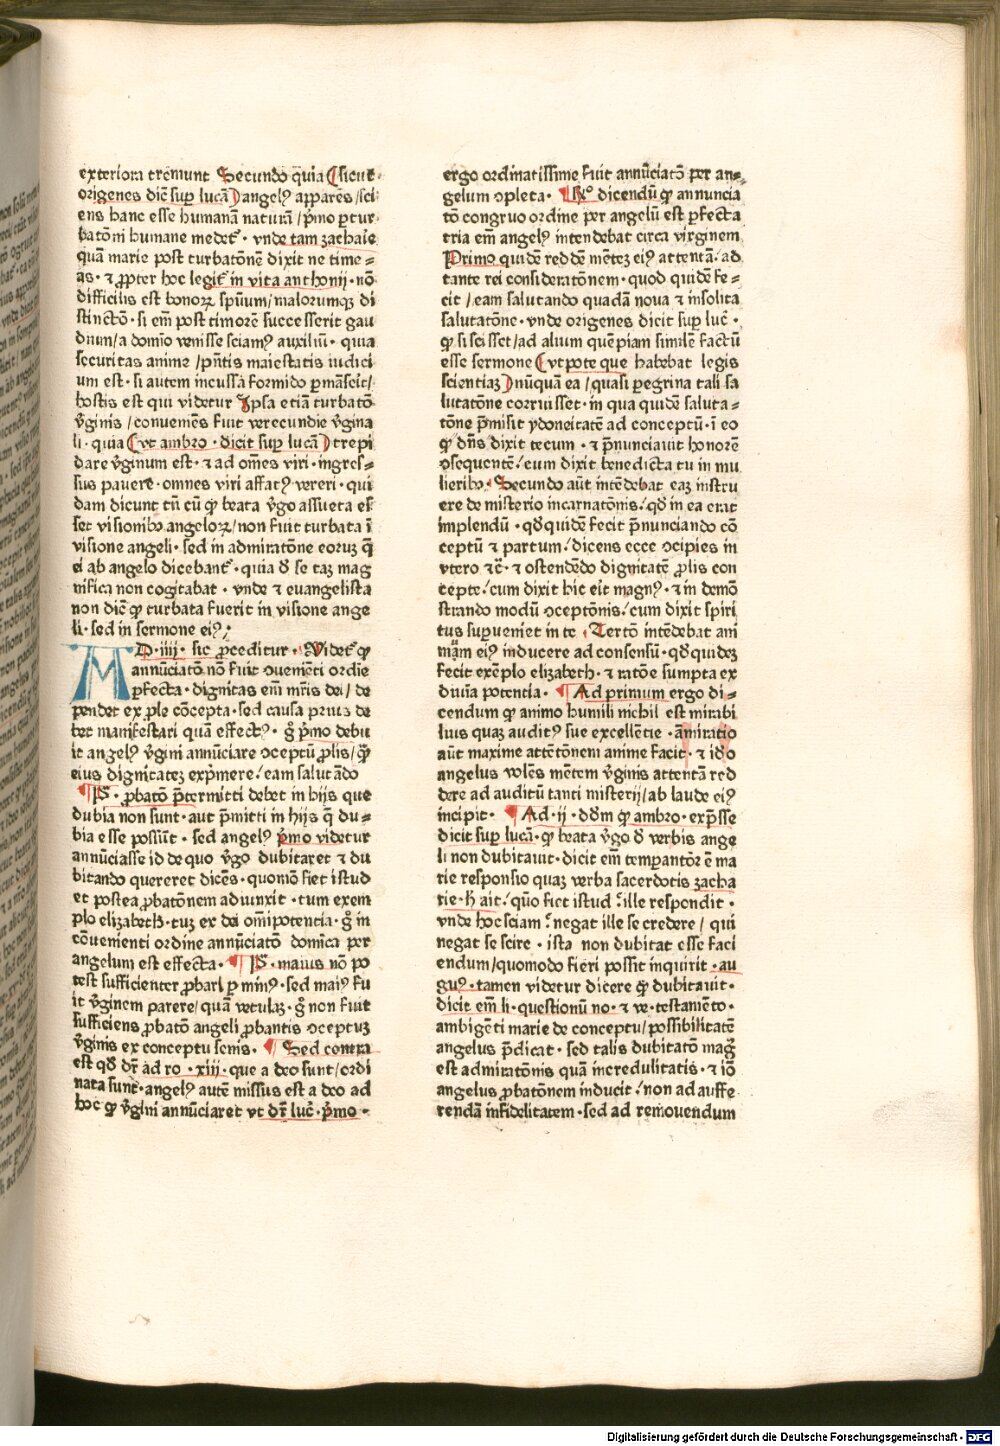 exteriora tremunt Secundo q̄uia (sicut
origenes dic̄ suꝑ lucā) angelꝰ apparēs / sci
ens hanc esse humanā naturā / p̄mo ꝑtur
batōni humane medet᷒ · vnde tam zacharie
quā marie post turbatōnē dixit ne time=
as · ⁊ ꝓpter hoc legit᷒ in vita anthonij · nō
difficilis est bonoꝝ spūum / malorumqꝫ di
stinctō · si em̄ post timorē successerit gau
dium / a domīo venisse sciamꝰ auxiliū · quia
securitas anime / pn̄tis maiestatis iudici
um est · si autem incussa formido ꝑmāserit /
hostis est qui videtur Ipsa etiā turbatō
v̄ginis / conueniēs fuit verecundie v̄gina
li · quia (vt ambro · dicit suꝑ lucā) trepi
dare v̄ginum est · ⁊ ad om̄es viri · ingres=
sus pauere · omnes viri affatꝰ vereri · qui
dam dicunt tn̄ cū ꝙ beata v̄go assueta es
set visionibꝰ angeloꝝ / non fuit turbata ī
visione angeli · sed in admiratōne eorum q̄
ei ab angelo dicebant᷒ · quia đ se taꝫ mag
nifica non cogitabat · vnde ⁊ euangelista
non dic̄ ꝙ turbata fuerit in visione ange
li · sed in sermone eiꝰ;
AD · iiij · sic ꝓceditur · Videt᷒ ꝙ
annūciatō nō fuit ↄueniēti ordīe
ꝑfecta · dignitas em̄ mr̄is dei / de
pendet ex ꝓle cōcepta · sed causa prius de
bet manifestari quā effectꝰ · g̊ p̄mo debu
it angelꝰ v̄gini annūciare ↄceptū ꝓlis / q̄ꝫ
eius dignitateꝫ exp̄mere / eam salutādo
¶ P̄ · ꝓbatō p̄termitti debet in hijs que
dubia non sunt · aut p̄mitti in hijs q̄ du=
bia esse possūt · sed angelꝰ p̄mo videtur
annūciasse id de quo v̄go dubitaret ⁊ du
bitando quereret dicēs · quomō fiet istud
et postea ꝓbatōnem adiunxit · tum exem
plo elizabeth · tuꝫ ex dei om̄ipotentia · g̊ in
cōuenienti ordine annūciatō domīca per
angelum est effecta · ¶ P̄ · maius nō po
test sufficienter ꝓbari ꝑ minꝰ · sed maiꝰ fu
it v̄ginem parere / quā vetulaꝫ · g̊ non fuit
sufficiens ꝓbatō angeli ꝓbantis ↄceptuꝫ
v̄ginis ex conceptu senis · ¶ Sed contra
est qđ dr̄ ad ro · xiii · que a deo sunt / ordi
nata sunt · angelꝰ autē missus est a deo ad
hoc ꝙ v̄gini annūciaret vt dr̄ luc̄ · p̄mo ·
ergo ordinatissime fuit annūciatō per an=
gelum ↄpleta · ¶ Rº dicendū ꝙ annuncia
tō congruo ordine per angelū est ꝑfecta
tria em̄ angelꝰ intendebat circa virginem
Primo quidē reddē mēteꝫ eiꝰ attentā / ad
tante rei consideratōnem · quod quidē fe=
cit / eam salutando quadā noua ⁊ insolita
salutatōne · vnde origenes dicit suꝑ luc̄ ·
ꝙ si scisset / ad alium quēpiam similē factū
esse sermonē (vtpote que habebat legis
scientiaꝫ) nūquā ea / quasi ꝑegrina tali sa
lutatōne corruisset · in qua quidē saluta=
tōne p̄misit ydoneitatē ad conceptū · ī eo
ꝙ dn̄s dixit tecum · ⁊ p̄nunciauit honorē
ↄsequentē / cum dixit benedicta tu in mu
lieribꝰ · Secundo aūt intēdebat eaꝫ instru
ere de misterio incarnatōnis / qđ in ea erat
implendū · qđ quidē fecit p̄nunciando cō
ceptū ⁊ partum / dicens ecce ↄcipies in
vtero ⁊c̄ · ⁊ ostendēdo dignitatē ꝓlis con
cepte / cum dixit hic erit magnꝰ · ⁊ in demō
strando modū ↄceptōnis / cum dixit spiri
tus suꝑueniet in te · Tertō intēdebat ani
mā eiꝰ inducere ad consensū · qđ quideꝫ
fecit exēplo elizabeth · ⁊ ratōe sumpta ex
diuīa potentia · ¶ Ad primum ergo di=
cendum ꝙ animo humili nichil est mirabi
lius quaꝫ auditꝰ sue excellētie · āmiratio
aūt maxime attētōnem anime facit · ⁊ idō
angelus volēs mētem v̄ginis attentā red
dere ad auditū tanti misterij / ab laude eiꝰ
incipit · ¶ Ad · ij · dōm ꝙ ambro · exp̄sse
dicit suꝑ lucā · ꝙ beata v̄go đ verbis ange
li non dubitauit · dicit em̄ temꝑantōr ē ma
rie responsio quaꝫ verba sacerdotis zacha
rie · h̄ ait / quō fiet istud / ille respondit ·
vnde hoc sciam / negat ille se credere / qui
negat se scire · ista non dubitat esse faci
endum / quomodo fieri possit inquirit · au
gꝰ · tamen videtur dicere ꝙ dubitauit ·
dicit em̄ li · questionū no · ⁊ ve · testamēto ·
ambigēti marie de conceptu / possibilitatē
angelus p̄dicat · sed talis dubitatō mag̊
est admiratōnis quā incredulitatis · ⁊ iō
angelus ꝓbatōnem inducit / non ad auffe
rendā infidelitatem · sed ad remouendum
Digitalisierung gefördert durch die Deutsche Forschungsgemeinschaft - DFG